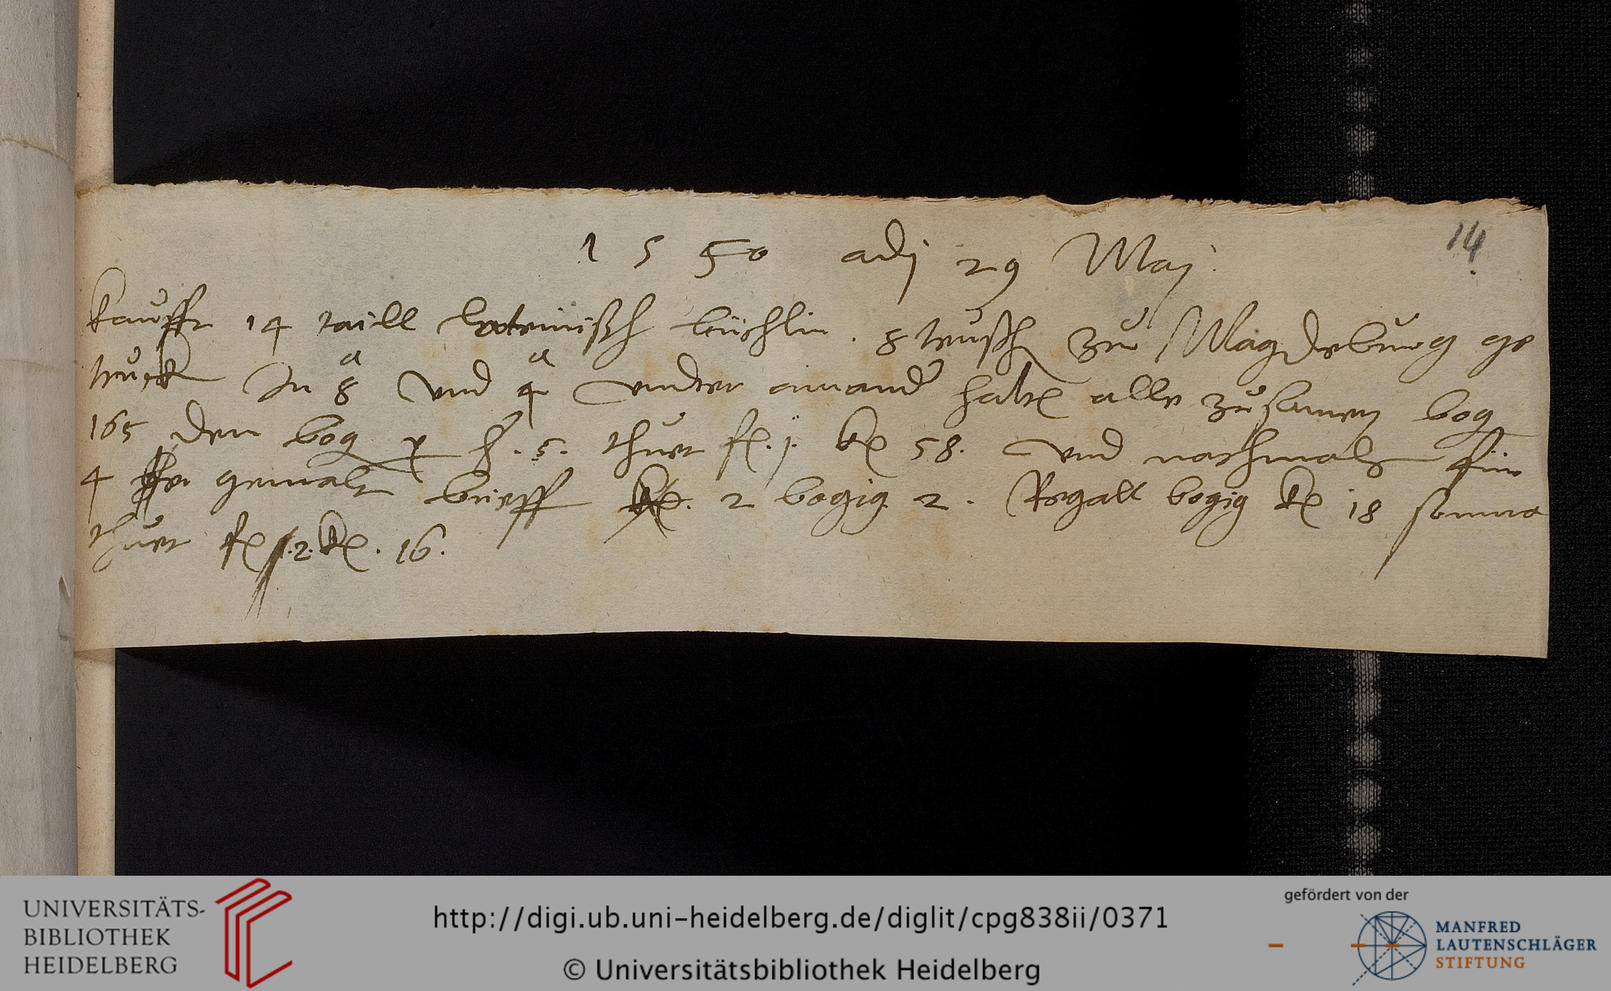 14
1550 adj 29 Maj.
kaufft 14 taill lateinisch büchlin . 8 teusch zu Magdeburg ge
truckt In 8a und 4a under ainander halten alle zusamen bog
165 den bog p h . 5 . thuet fl . j . kr 58 . und nachmals fur
4 gemalt brieff 2 bogig 2 . Regall bogig kr 18 somma
thuet fl . 2 . kr . 16 .
UNIVERSITÄTS-
BIBLIOTHEK
HEIDELBERG
http://digi.ub.uni-heidelberg.de/diglit/cpg838ii/0371
© Universitätsbibliothek Heidelberg
gefördert von der
MANFRED
LAUTENSCHLÄGER
STIFTUNG